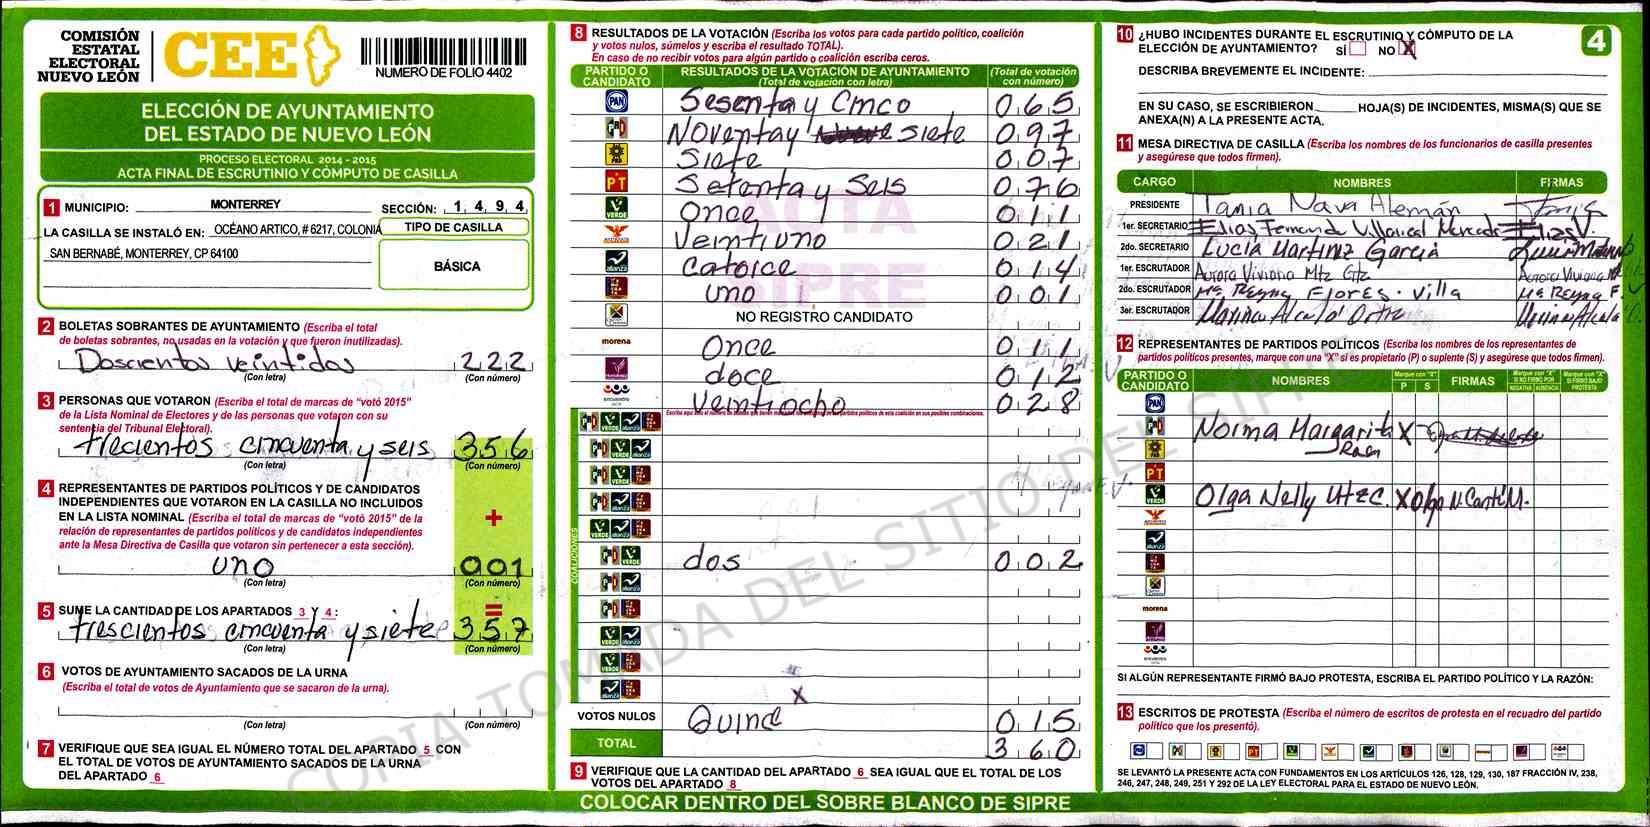 COMISIÓN
ESTATAL
ELECTORAL
NUEVO LEÓN
CEE
NUMERO DE FOLIO 4402
ELECCIÓN DE AYUNTAMIENTO
DEL ESTADO DE NUEVO LEÓN
PROCESO ELECTORAL 2014 - 2015
ACTA FINAL DE ESCRUTINIO Y CÓMPUTO DE CASILLA
1 MUNICIPIO: MONTERREY SECCIÓN: 1 4 9 4
LA CASILLA SE INSTALÓ EN: OCÉANO ARTICO, # 6217, COLONIA
SAN BERNABÉ, MONTERREY, CP 64100
TIPO DE CASILLA
BÁSICA
2 BOLETAS SOBRANTES DE AYUNTAMIENTO (Escriba el total
de boletas sobrantes, no usadas en la votación y que fueron inutilizadas).
Doscientos veintidos 2 2 2
(Con letra) (Con número)
3 PERSONAS QUE VOTARON (Escriba el total de marcas de "votó 2015"
de la Lista Nominal de Electores y de las personas que votaron con su
sentencia del Tribunal Electoral).
trecientos cincuenta y seis 3 5 6
(Con letra) (Con número)
4 REPRESENTANTES DE PARTIDOS POLÍTICOS Y DE CANDIDATOS
INDEPENDIENTES QUE VOTARON EN LA CASILLA NO INCLUIDOS
EN LA LISTA NOMINAL (Escriba el total de marcas de "votó 2015" de la
relación de representantes de partidos políticos y de candidatos independientes
ante la Mesa Directiva de Casilla que votaron sin pertenecer a esta sección).
+
uno 0 0 1
(Con letra) (Con número)
5 SUME LA CANTIDAD DE LOS APARTADOS 3 Y 4:
=
trescientos cincuenta y siete 3 5 7
(Con letra) (Con número)
6 VOTOS DE AYUNTAMIENTO SACADOS DE LA URNA
(Escriba el total de votos de Ayuntamiento que se sacaron de la urna).
(Con letra) (Con número)
7 VERIFIQUE QUE SEA IGUAL EL NÚMERO TOTAL DEL APARTADO 5 CON
EL TOTAL DE VOTOS DE AYUNTAMIENTO SACADOS DE LA URNA
DEL APARTADO 6
8 RESULTADOS DE LA VOTACIÓN (Escriba los votos para cada partido político, coalición
y votos nulos, súmelos y escriba el resultado TOTAL).
En caso de no recibir votos para algún partido o coalición escriba ceros.
PARTIDO O CANDIDATO RESULTADOS DE LA VOTACIÓN DE AYUNTAMIENTO (Total de votación con letra) (Total de votación con número)
PAN Sesenta y Cinco 0 6 5
PRD Noventa y siete 0 9 7
PRD Siete 0 0 7
PT Setenta y Seis 0 7 6
VERDE Once 0 1 1
Veintiuno 0 2 1
alianza Catorce 0 1 4
uno 0 0 1
NO REGISTRO CANDIDATO
morena Once 0 1 1
doce 0 1 2
encuentro Veintiocho 0 2 8
COALICIONES
PRI VERDE dos 0 0 2
X
VOTOS NULOS Quince 0 1 5
TOTAL 3 6 0
9 VERIFIQUE QUE LA CANTIDAD DEL APARTADO 6 SEA IGUAL QUE EL TOTAL DE LOS
VOTOS DEL APARTADO 8
COLOCAR DENTRO DEL SOBRE BLANCO DE SIPRE
ACTA
SIPRE
COPIA TOMADA DEL SITIO DEL SIPRE
10 ¿HUBO INCIDENTES DURANTE EL ESCRUTINIO Y CÓMPUTO DE LA
ELECCIÓN DE AYUNTAMIENTO? SÍ NO X
4
DESCRIBA BREVEMENTE EL INCIDENTE:
EN SU CASO, SE ESCRIBIERON HOJA(S) DE INCIDENTES, MISMA(S) QUE SE
ANEXA(N) A LA PRESENTE ACTA.
11 MESA DIRECTIVA DE CASILLA (Escriba los nombres de los funcionarios de casilla presentes
y asegúrese que todos firmen).
CARGO NOMBRES FIRMAS
PRESIDENTE Tania Nava Alemán
1er. SECRETARIO Elias Fernando Villarreal Mercado Elias V.
2do. SECRETARIO Lucia Martinez Garcia
1er. ESCRUTADOR Aurora Viviana Mtz Gtz Aurora Viviana
2do. ESCRUTADOR Ma. Reyna Flores. Villa Ma Reyna F. V
3er. ESCRUTADOR
12 REPRESENTANTES DE PARTIDOS POLÍTICOS (Escriba los nombres de los representantes de
partidos políticos presentes, marque con una "X" si es propietario (P) o suplente (S) y asegúrese que todos firmen).
PARTIDO O CANDIDATO NOMBRES Marque con "X" P S FIRMAS Marque con "X" SI NO FIRMÓ POR NEGATIVA AUSENCIA Marque con "X" SI FIRMÓ BAJO PROTESTA
PAN
Norma Margarita X
PRD
PT
VERDE Olga Nelly Mtz C. X Olga N. Cantú M.
alianza
morena
encuentro
SI ALGÚN REPRESENTANTE FIRMÓ BAJO PROTESTA, ESCRIBA EL PARTIDO POLÍTICO Y LA RAZÓN:
13 ESCRITOS DE PROTESTA (Escriba el número de escritos de protesta en el recuadro del partido
político que los presentó).
SE LEVANTÓ LA PRESENTE ACTA CON FUNDAMENTOS EN LOS ARTÍCULOS 126, 128, 129, 130, 187 FRACCIÓN IV, 238,
246, 247, 248, 249, 251 Y 292 DE LA LEY ELECTORAL PARA EL ESTADO DE NUEVO LEÓN.